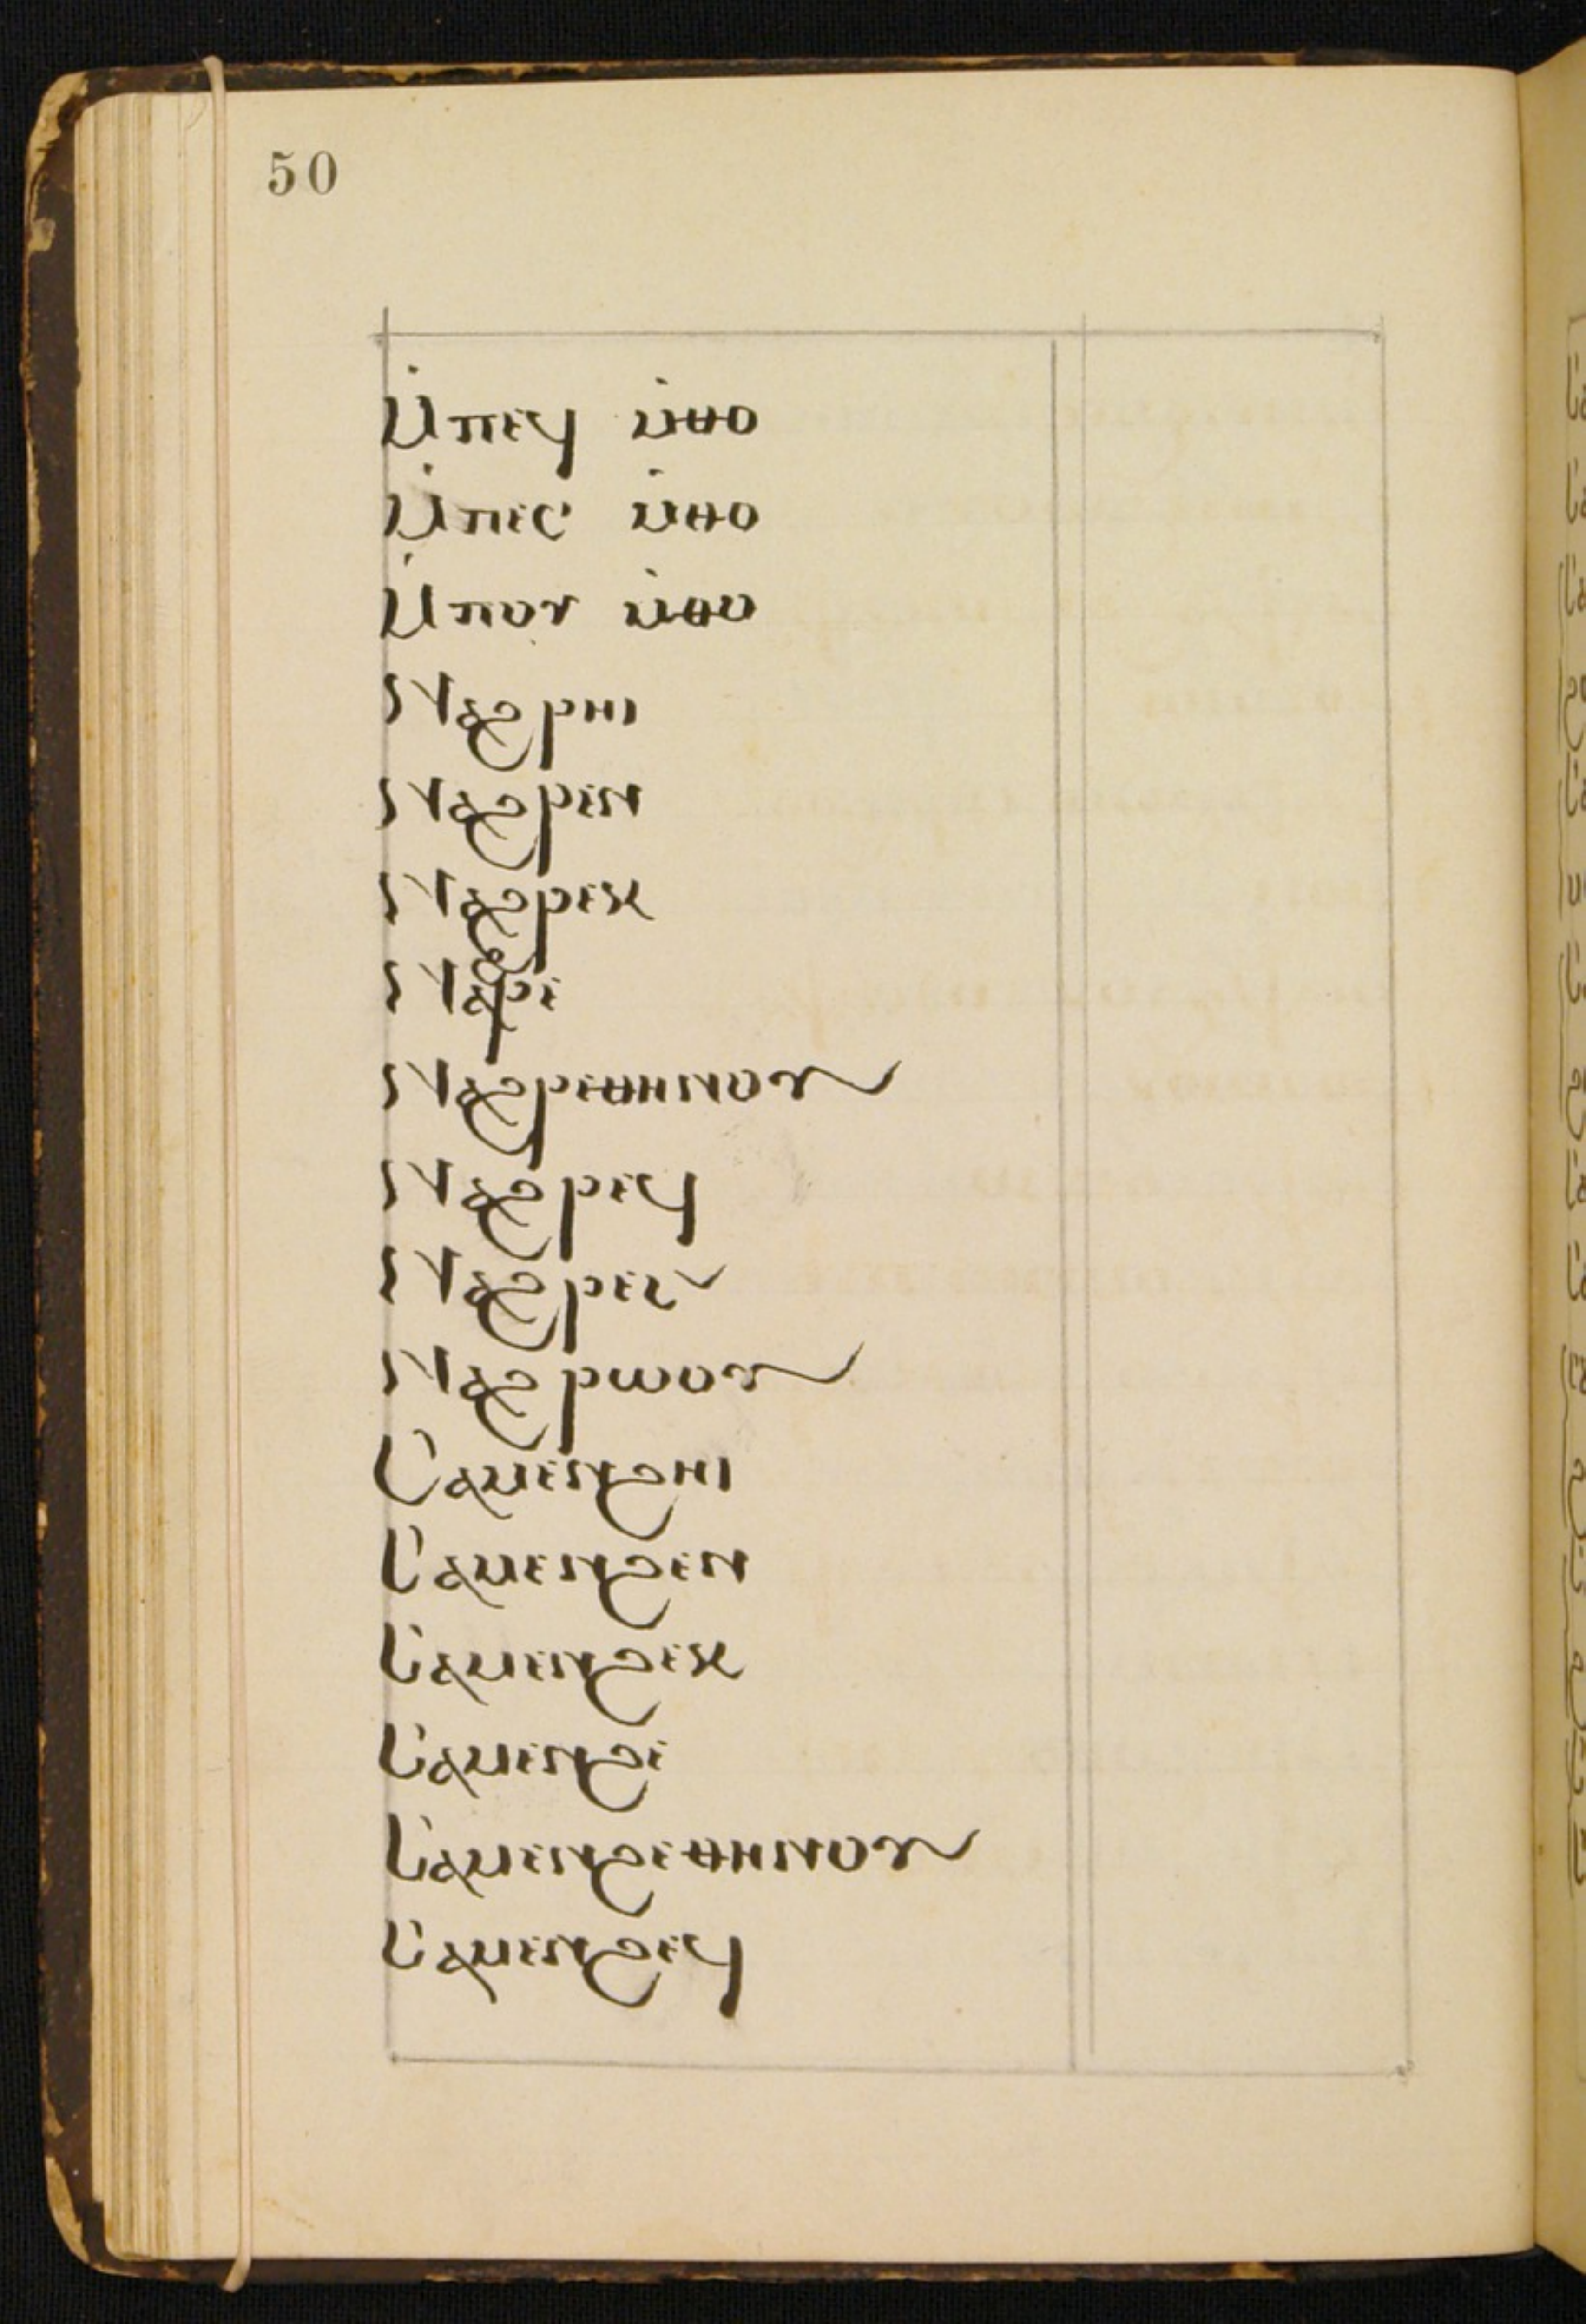 50
Ⲙ̇ⲡⲉϥ ⲙ̇ⲑⲟ
Ⲙ̇ⲡⲉⲥ ⲙ̇ⲑⲟ
Ⲙ̇ⲡⲟⲩ ⲙ̇ⲑⲟ
Ⲛⲁϩⲣⲏⲓ
Ⲛⲁϩⲣⲉⲛ
Ⲛⲁϩⲣⲉⲕ
Ⲛⲁϩⲣⲉ
Ⲛⲁϩⲣⲉⲑⲏⲛⲟⲩ
Ⲛⲁϩⲣⲉϥ
Ⲛⲁϩⲣⲉⲥ
Ⲛⲁϩⲣⲱⲟⲩ
Ⲥⲁⲙⲉⲛϩⲏⲓ
Ⲥⲁⲙⲉⲛϩⲉⲛ
Ⲥⲁⲙⲉⲛϩⲉⲕ
Ⲥⲁⲙⲉⲛϩⲉ
Ⲥⲁⲙⲉⲛϩⲉⲑⲏⲛⲟⲩ
Ⲥⲁⲙⲉⲛϩⲉϥ